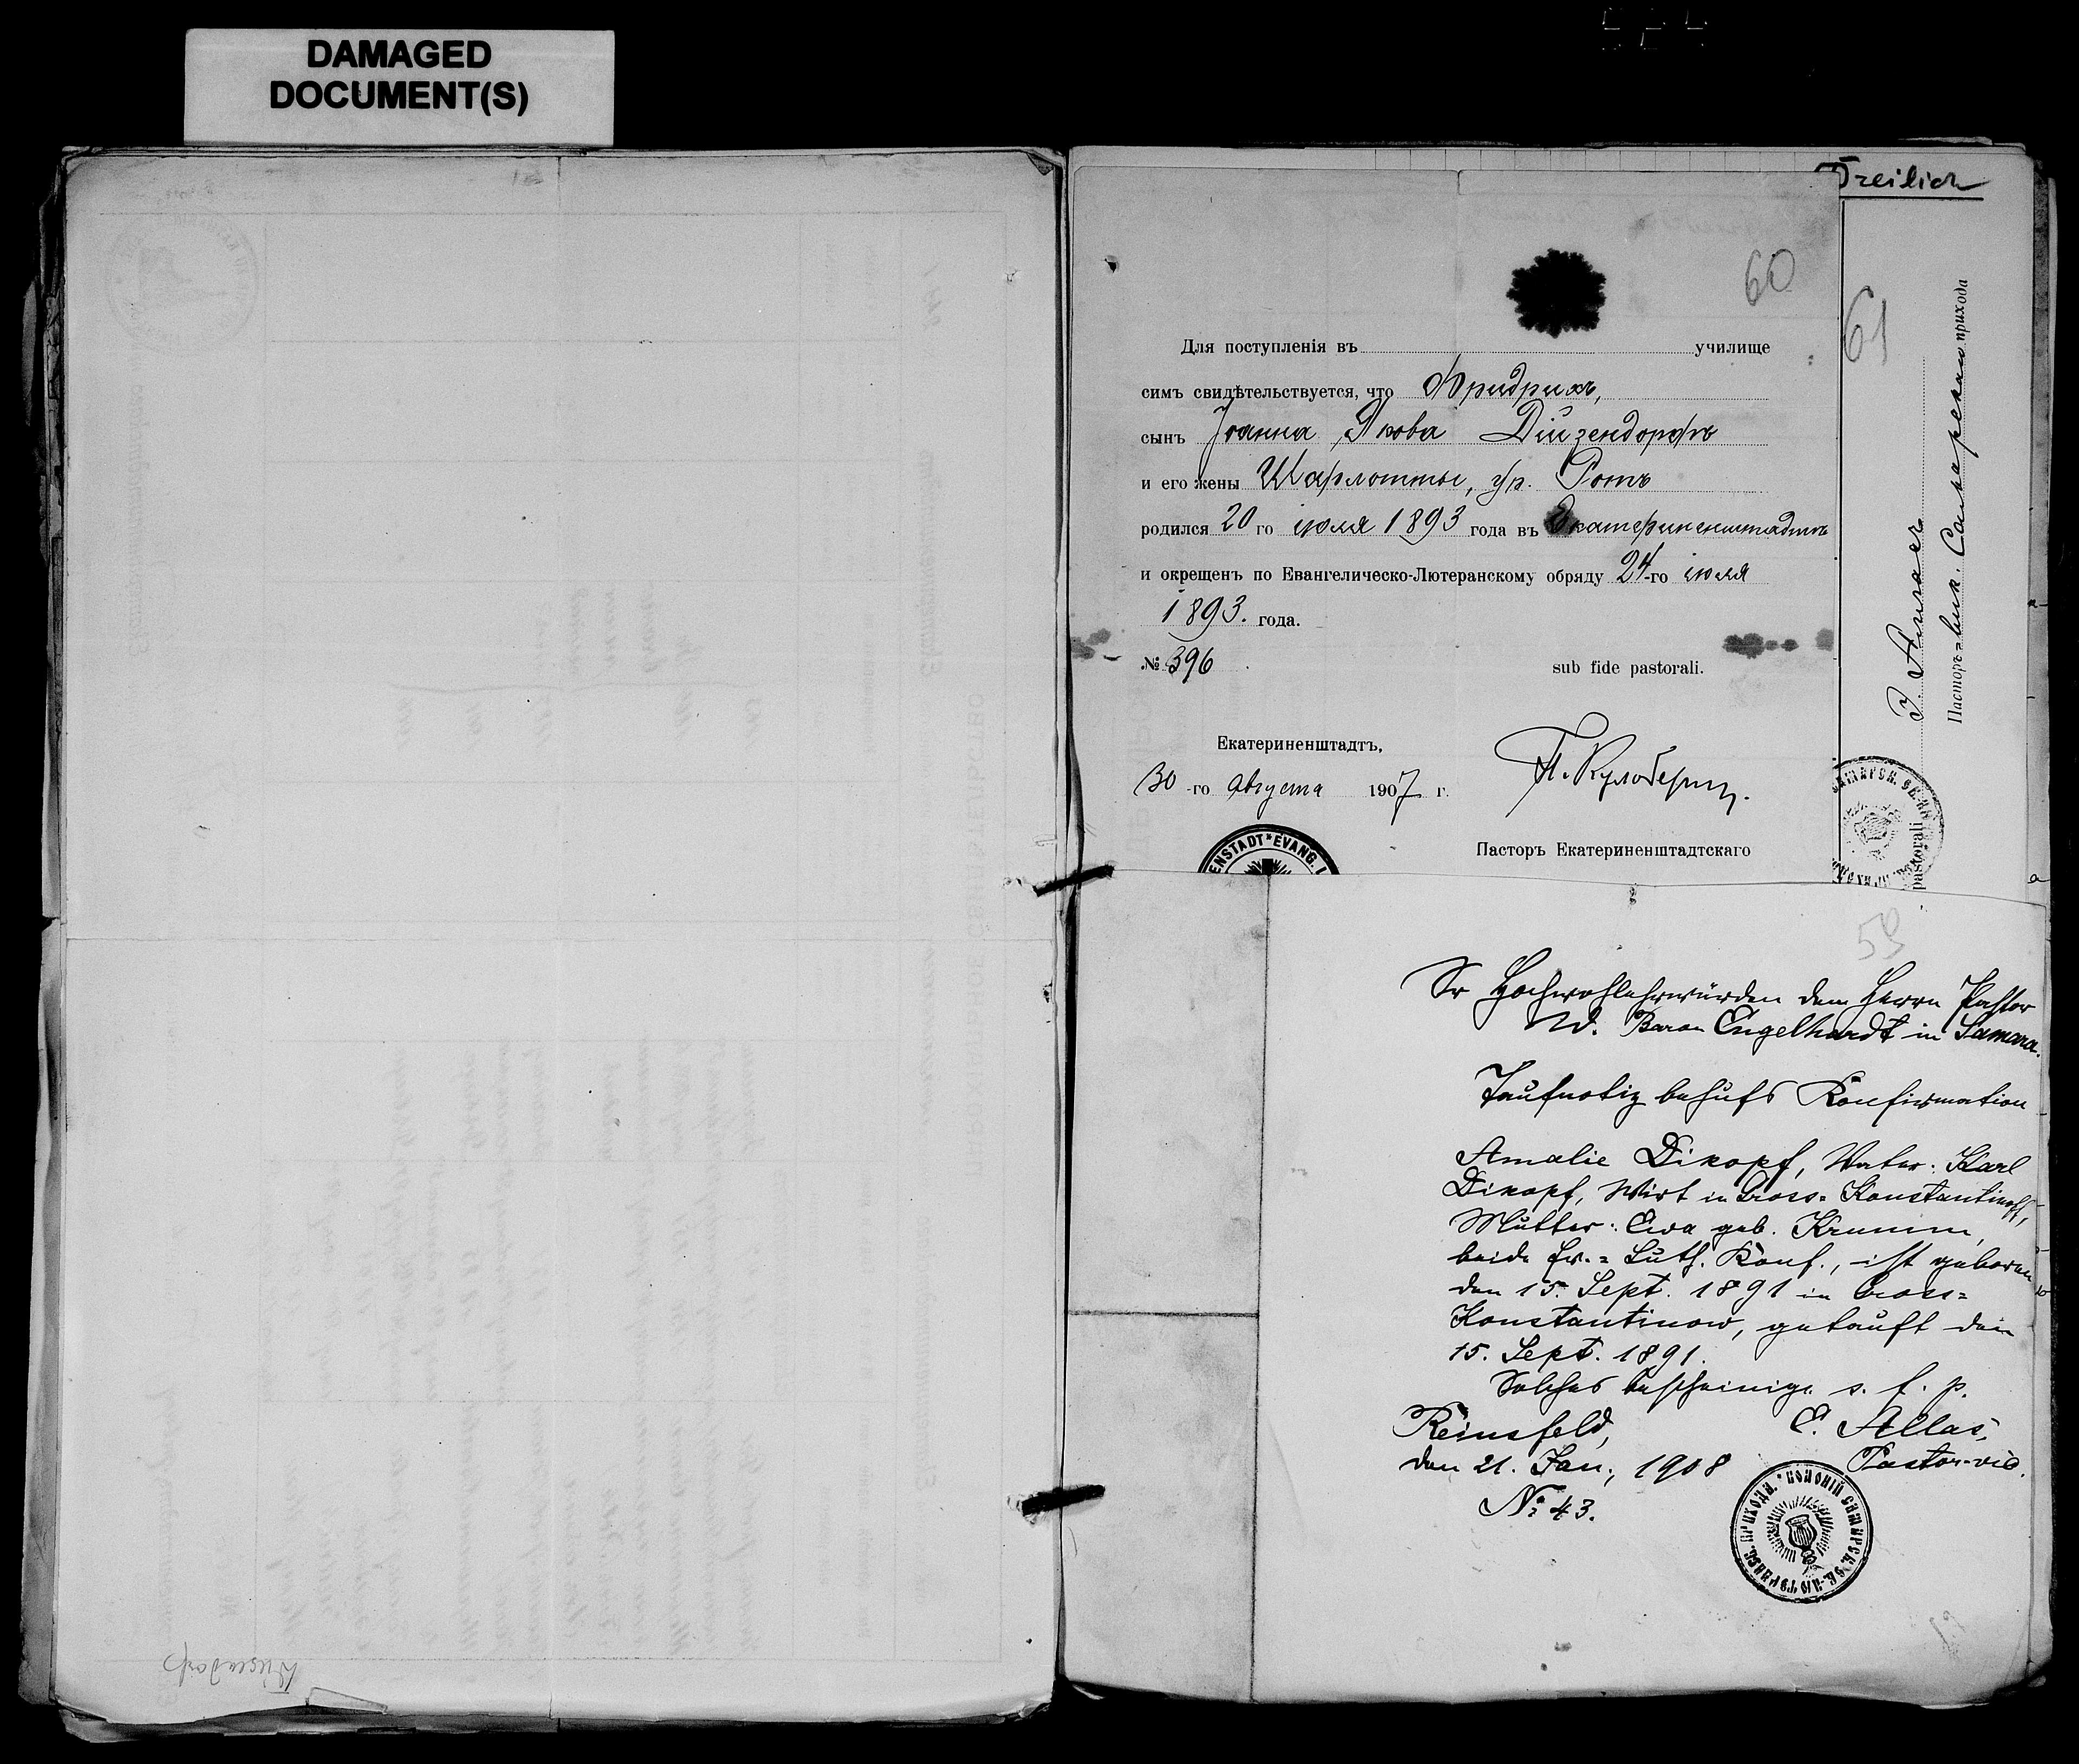 DAMAGED
DOCUMENT(S)
Freilich
60
Для поступленія въ училище
симъ свидѣтельствуется, что Фридрихъ,
сынъ Іоанна Якова Дизендорфъ
и его жены Шарлотты, ур. Ротъ
родился 20 го іюля 1893 года въ Екатериненштадтѣ
и окрещенъ по Евангелическо-Лютеранскому обряду 24-го іюля
1893. года.
№ 396
sub fide pastorali.
Екатериненштадтъ,
30 -го августа 1907 г.
Пасторъ Екатериненштадтскаго
ENSTADT * EVANG. L
61
Пасторъ-вик. Самарскаго прихода
pastorali
59
Sr Hochwohlehrwürden dem Herrn Pastor
W. Baron Engelhardt in Samara.
Taufnotiz behufs Konfirmation
Amalie Dikopf, Vater: Karl
Dikopf, Wirt in Gross-Konstantinoff,
Mutter: Ewa geb. Krumm,
beide Ev.-Luth. Konf., ist geboren
den 15. Sept. 1891 in Gross-
Konstantinow, getauft den
15. Sept. 1891.
Solches bescheinigt s. f. p.
Reinsfeld,
E. Allas,
den 21. Jan., 1908
Pastor-vic.
№ 43.